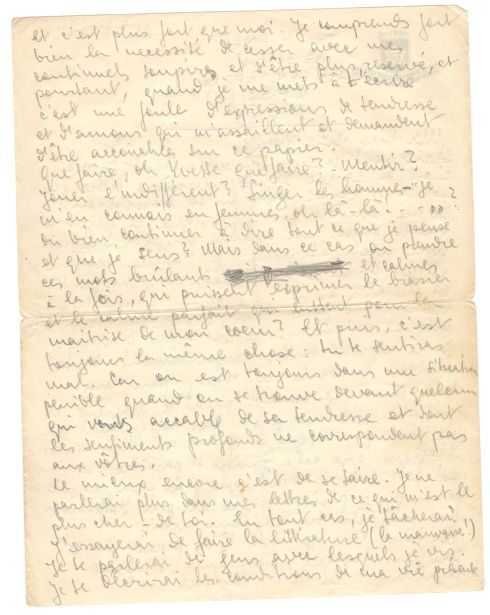 et c'est plus fort que moi. Je comprends fort
bien la necessité de cesser avec mes
continuels soupirs et d'être plus reservé, et
pourtant, quand je me mets à t'écrire
c'est une foule d'expressions de tendresse
et d'amour qui m'assaillent et demandent
d'être accouchées sur ce papier.
Que faire, oh Yvette que faire? Mentir?
Jouer l'indifférent? Singer les hommes-"je
m'en connais en femmes, oh là-là!"
ou bien continuer à dire tout ce que je pense
et que je sens? Mais dans ce cas où prendre
ces mots brûlants et calmes
à la fois, qui puissent exprimer le brasier
et le calme parfait qui luttent pour la
maitrise de mon coeur? Et puis, c'est
toujours la même chose: tu te sentiras
mal. Car on est toujours dans une situation
penible quand on se trouve devant quelqu'un
qui vous accable de sa tendresse et dont
les sentiments profonds ne correspondent pas
aux vôtres.
Le mieux encore c'est de se taire. Je ne
parlerai plus dans mes lettres de ce qui m'est le
plus cher - de toi. En tout cas, je tâcherai
J'essayerai de faire la littérature (la mauvaise!)
Je te parlerai de gens avec lesquels je vis.
Je te décrirai les conditions de ma vie présente